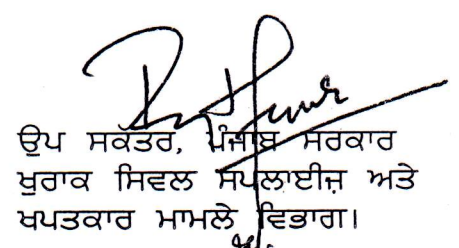 ਉਪ ਸਕੱਤਰ, ਪੰਜਾਬ ਸਰਕਾਰ
ਖੁਰਾਕ ਸਿਵਲ ਸਪਲਾਈਜ਼ ਅਤੇ
ਖਪਤਕਾਰ ਮਾਮਲੇ ਵਿਭਾਗ।